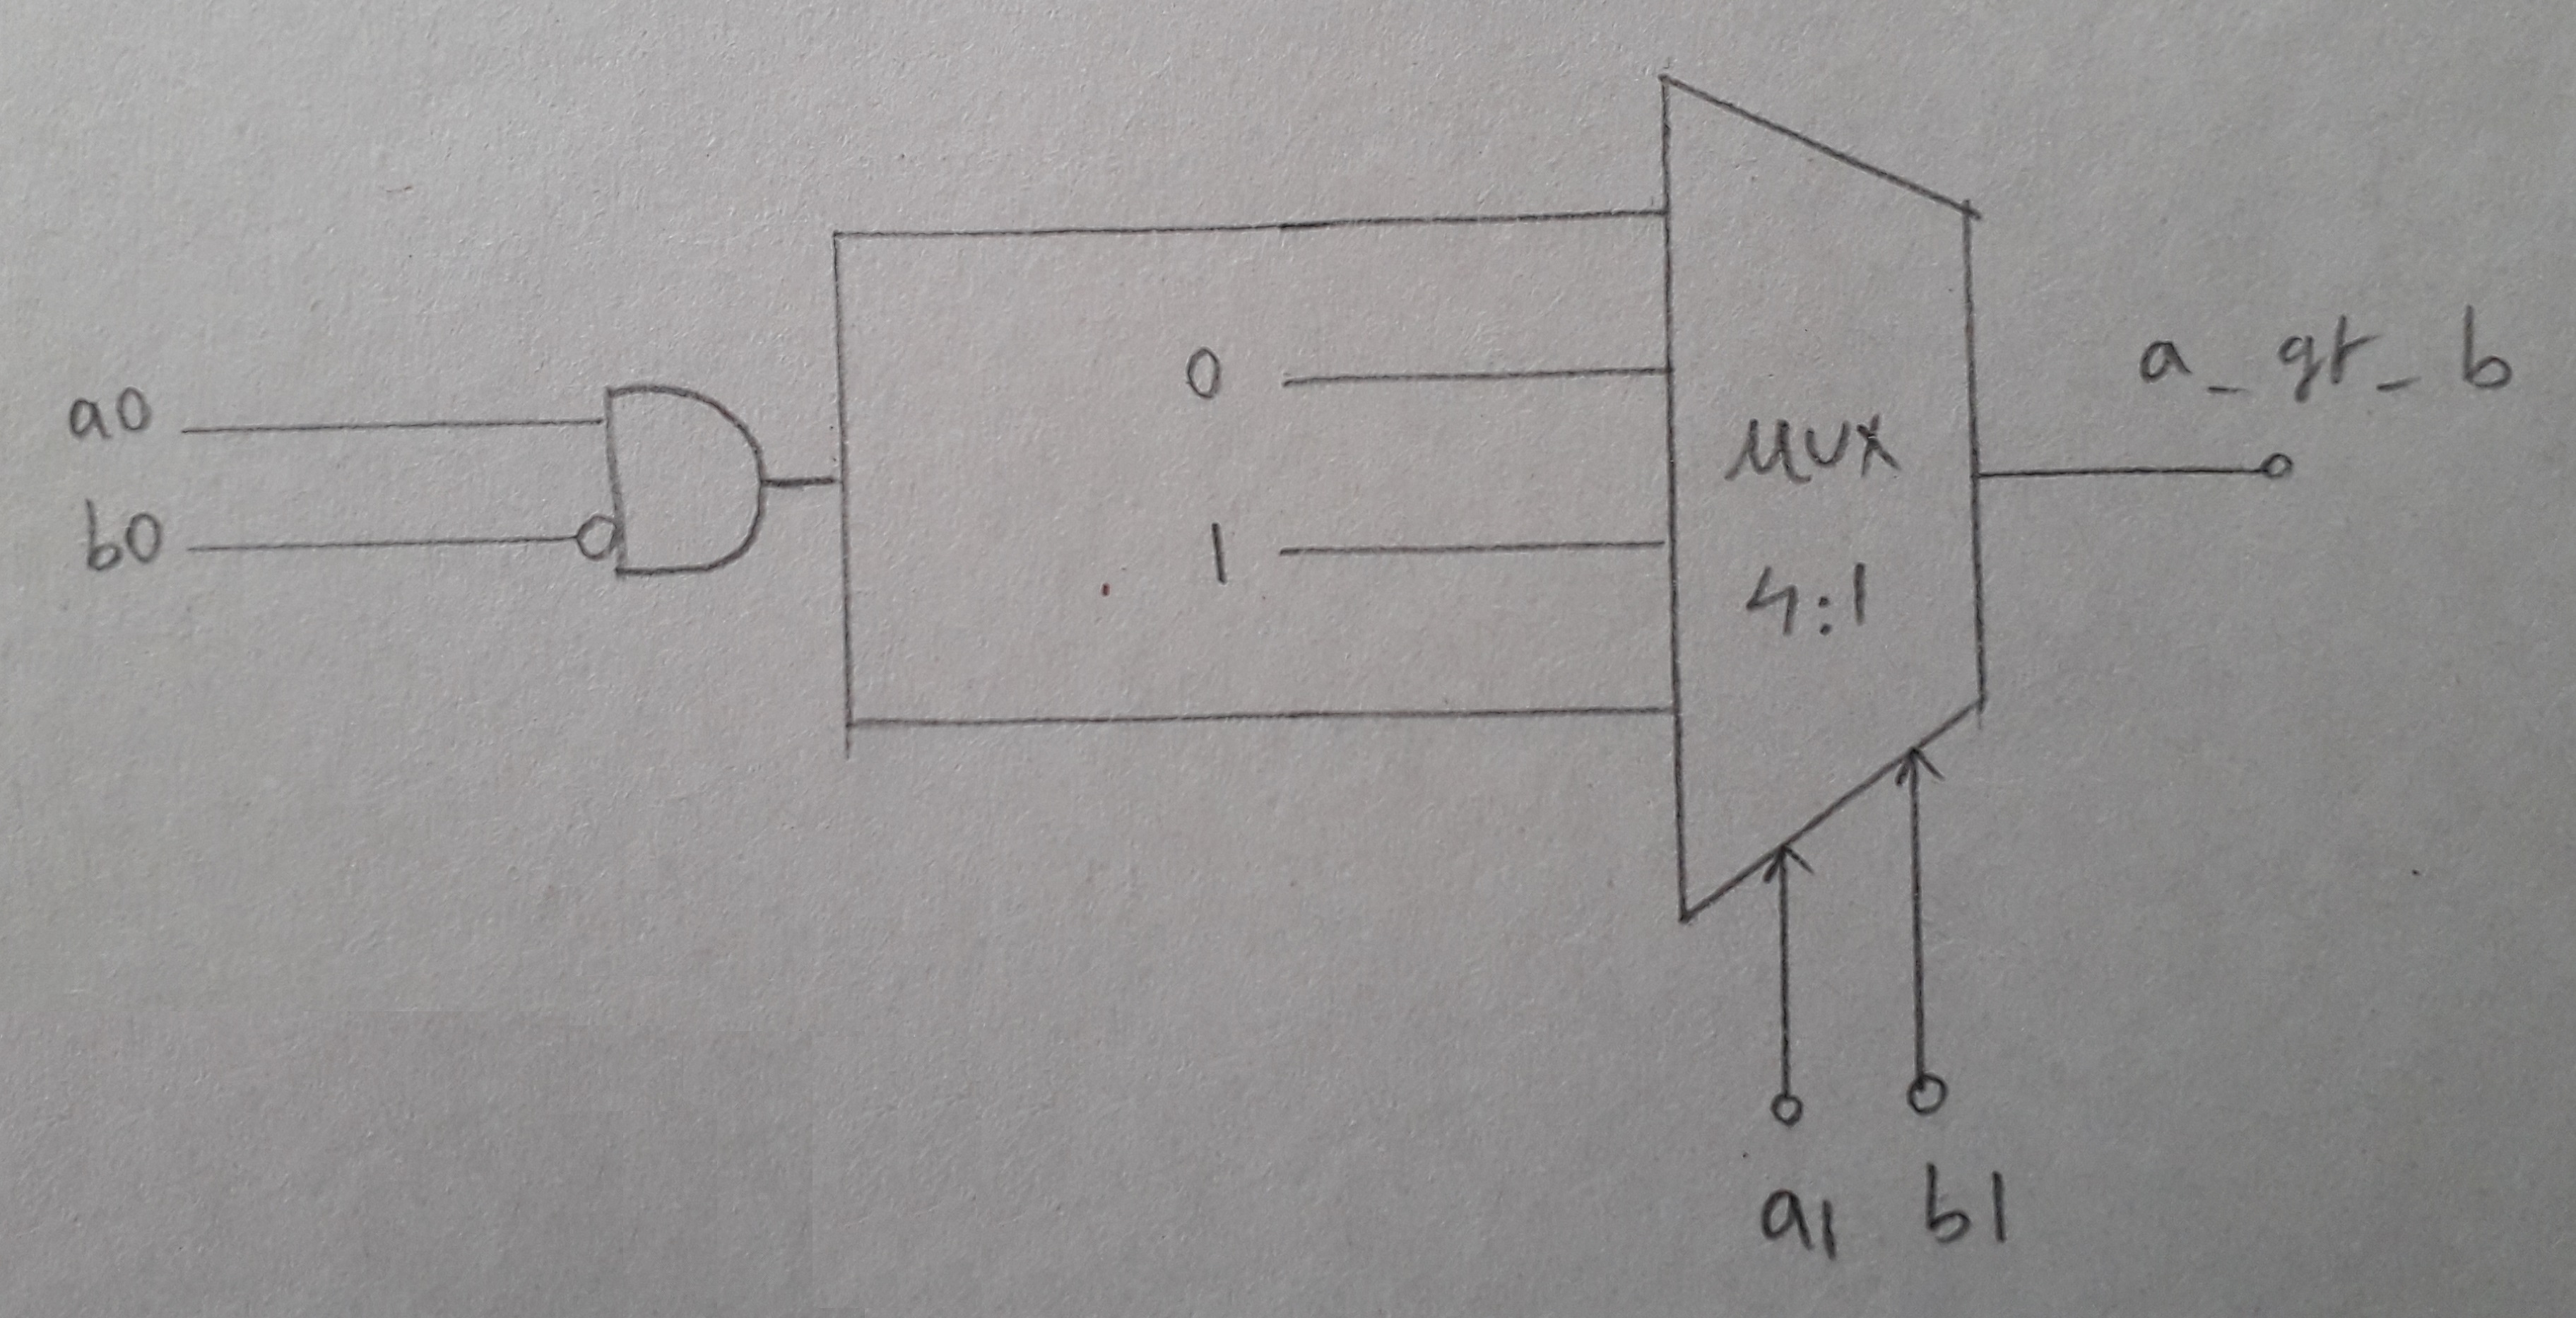 a0
b0
0
1
MUX
4:1
a_gt_b
a1 b1